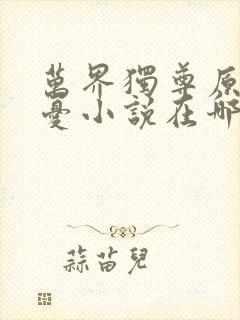 萬界獨尊原
憂小說在哪
蒜苗兒